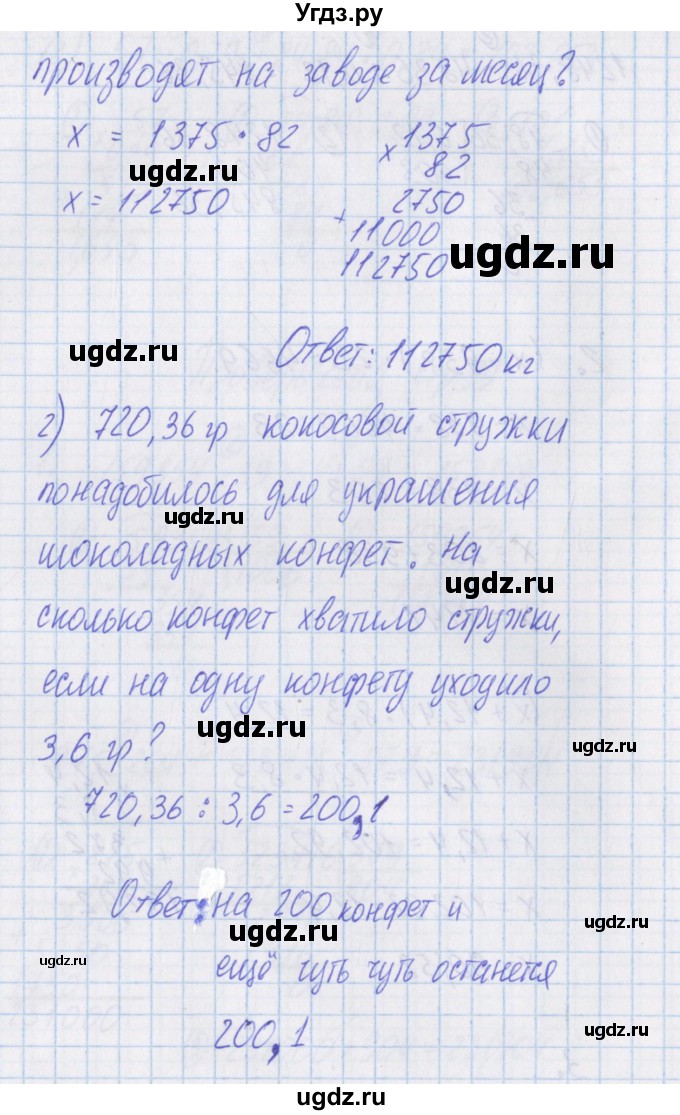 Угдз.ру
производят на заводе за месяц?
x = 1375 · 82
x 1375
82
ugdz.ru
x = 112750
2750
+ 11000
112750
ugdz.ru
ugdz.ru
Ответ: 112750 кг
г) 720,36 гр кокосовой стружки
понадобилось для украшения
ugdz.ru
шоколадных конфет. На
ugdz.ru
сколько конфет хватило стружки,
если на одну конфету уходило
ugdz.ru
3,6 гр?
ugdz.ru
720,36 : 3,6 = 200,1
Ответ: на 200 конфет и
ugdz.ru
ugdz.ru
ещё чуть чуть останется
ugdz.ru
200,1
ugdz.ru
ugdz.ru